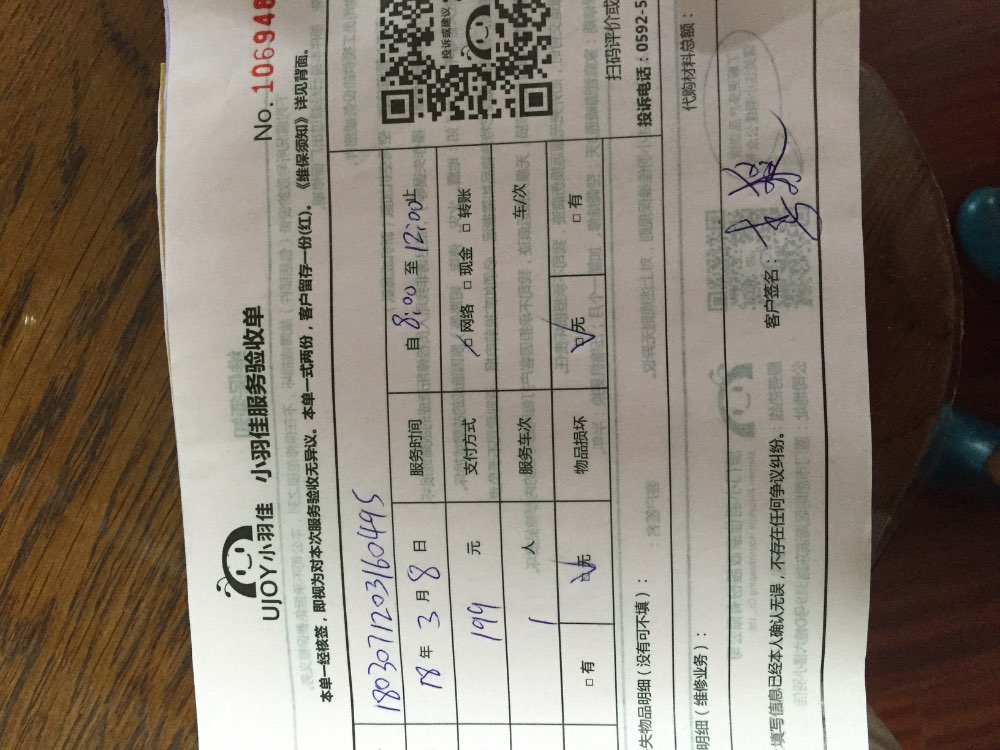 No. 106948
UJOY小羽佳 小羽佳服务验收单
本单一经核签，即视为对本次服务验收无异议。本单一式两份，客户留存一份(红)。《维保须知》详见背面。
18030712031604495
18 年 3 月 8 日 服务时间 自 8:00 至 12:00 止
199 元 支付方式 □ 网络 □ 现金 □ 转账
1 人 服务车次 车/次
□ 有 □ 无 物品损坏 □ 无 □ 有
投诉或建议
扫码评价或
失物品明细（没有可不填）：
投诉电话：0592-5
明细（维修业务）：
代购材料总额：
填写信息已经本人确认无误，不存在任何争议纠纷。
客户签名：